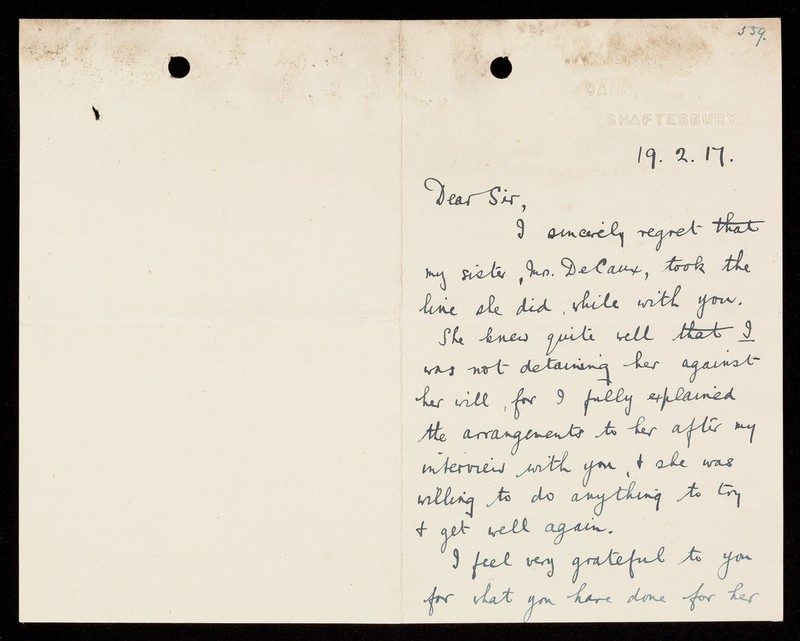 539.
CANN,
SHAFTESBURY.
19. 2. 17.
Dear Sir,
I sincerely regret that
my sister, Mrs. DeCaux, took the
line she did, while with you.
She knew quite well that I
was not detaining her against
her will, for I fully explained
the arrangements to her after my
interview with you, & she was
willing to do anything to try
& get well again.
I feel very grateful to you
for what you have done for her